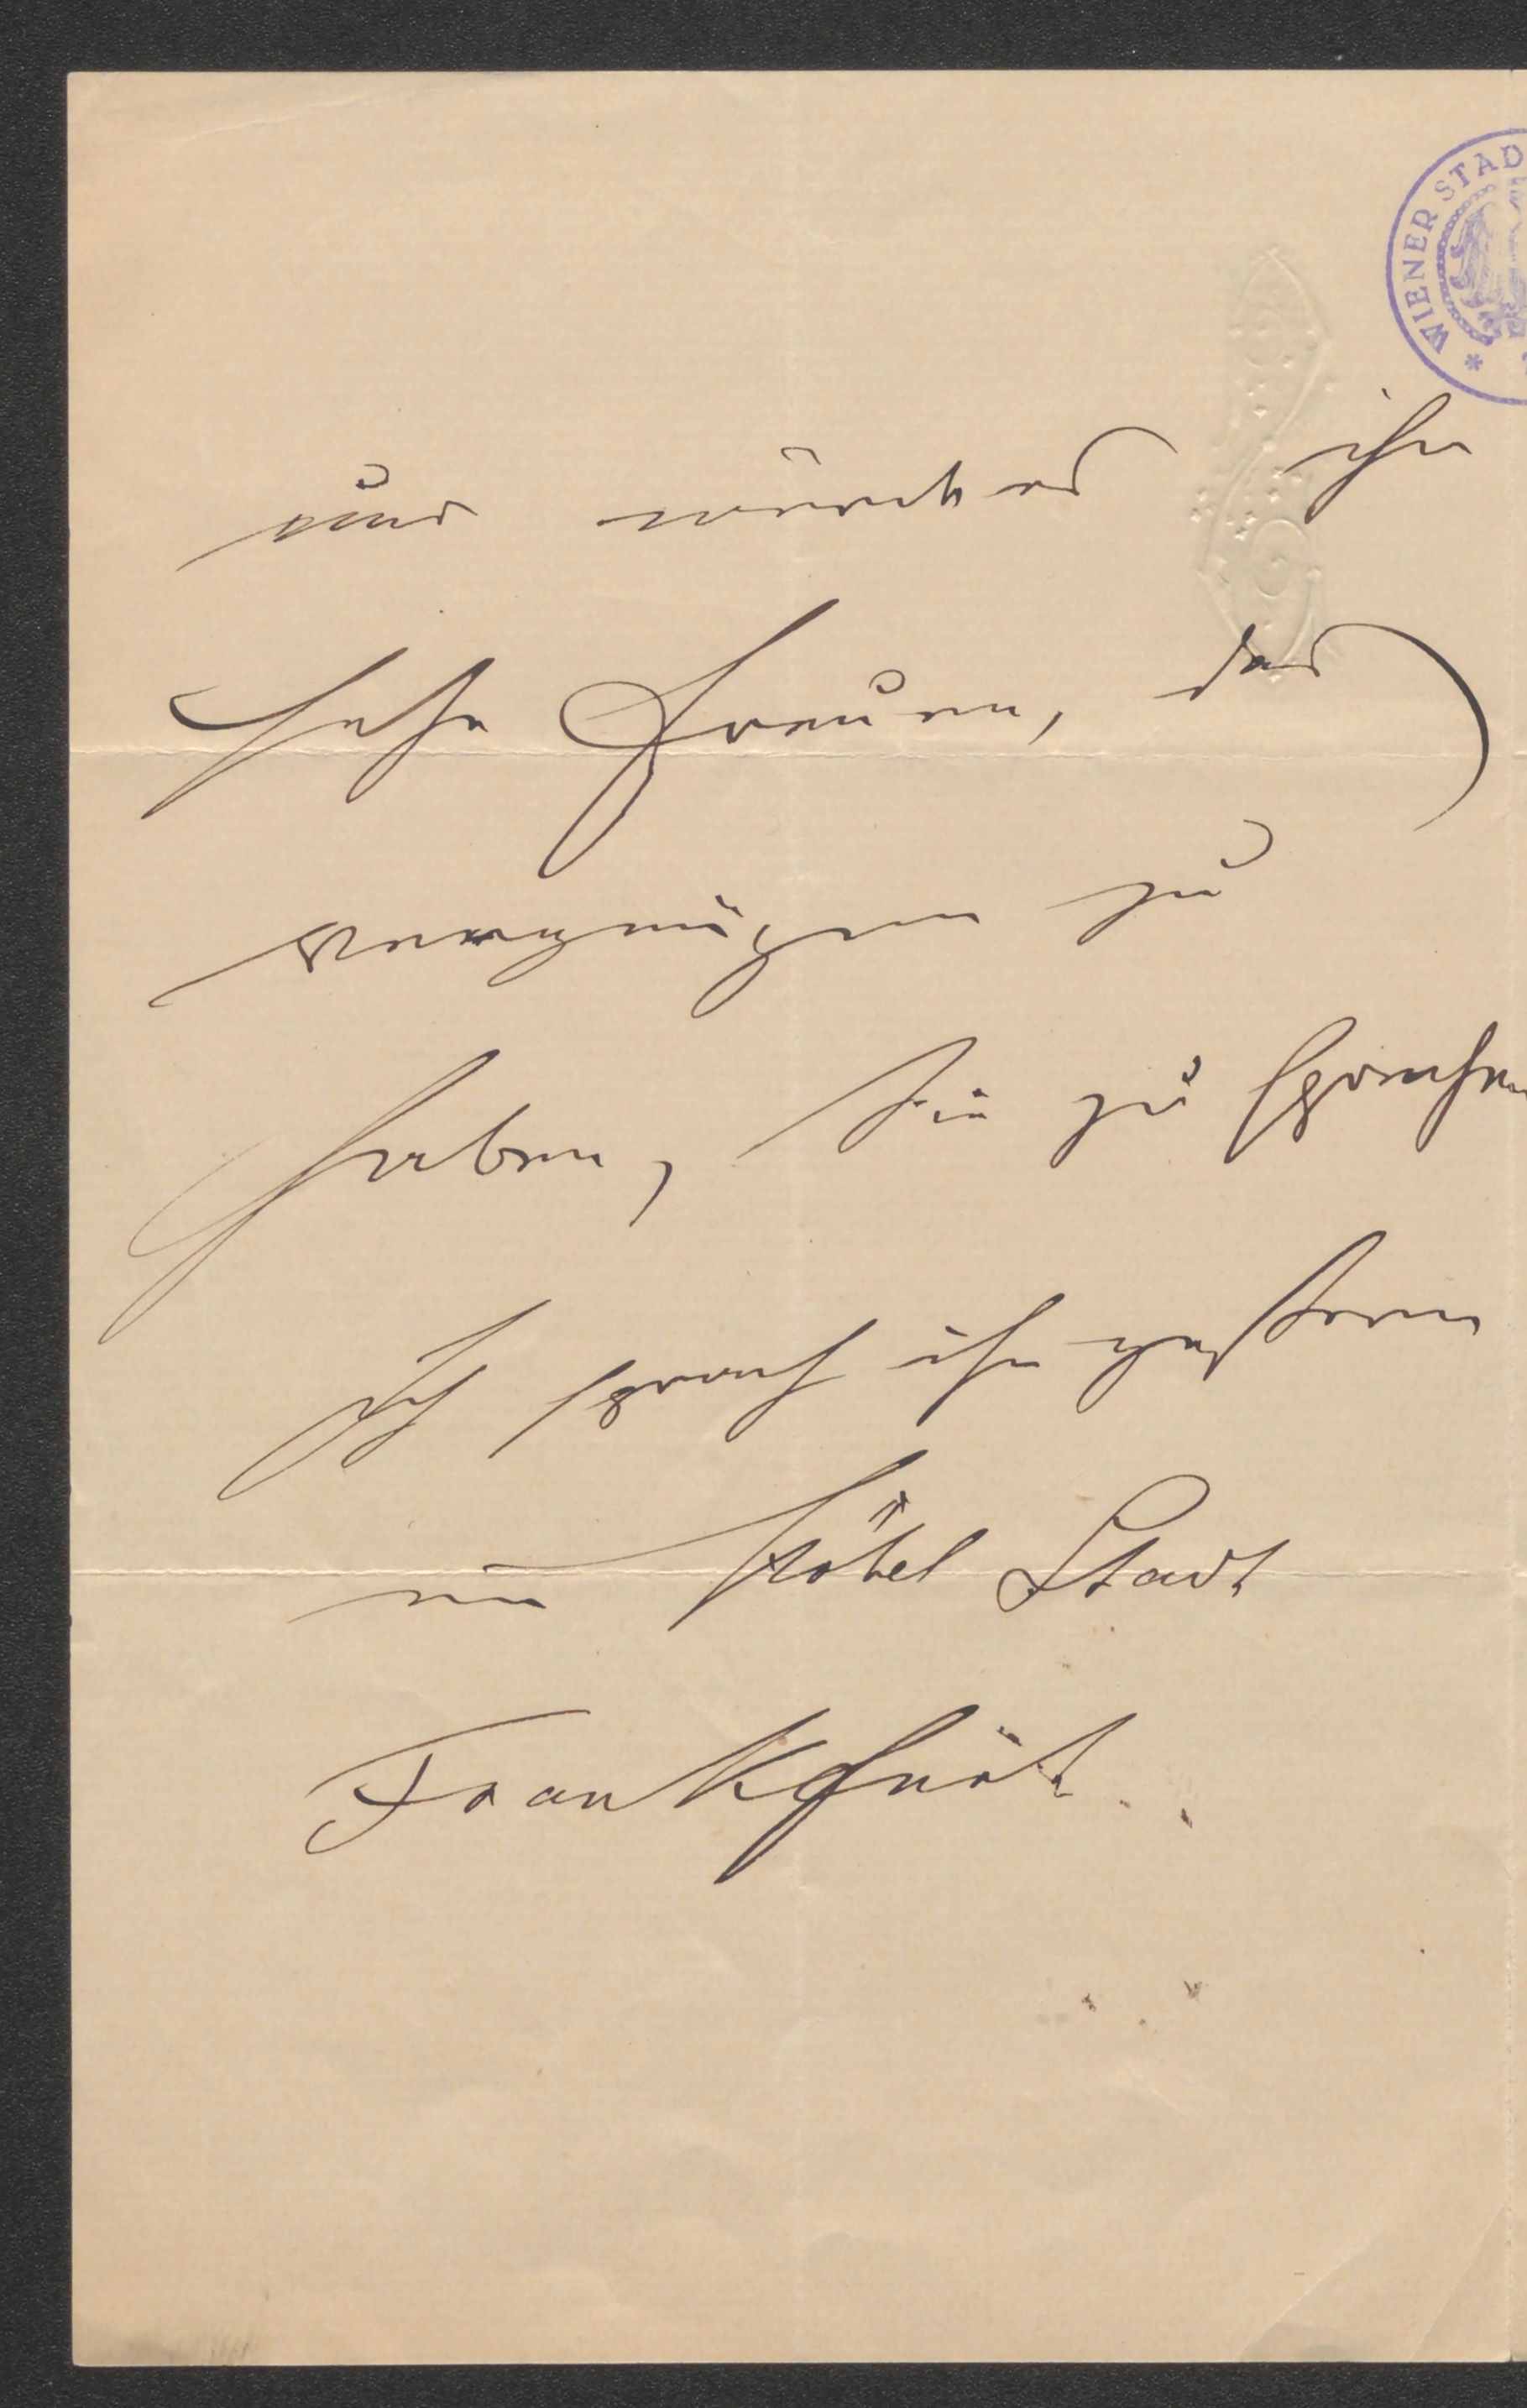 WIENER STAD
und würde es ihn
sehr freuen, das
vergnügen zu
haben, Sie zu sprechen
Ich sprach ihn gestern
im Hôtel Stadt
Frankfurt.